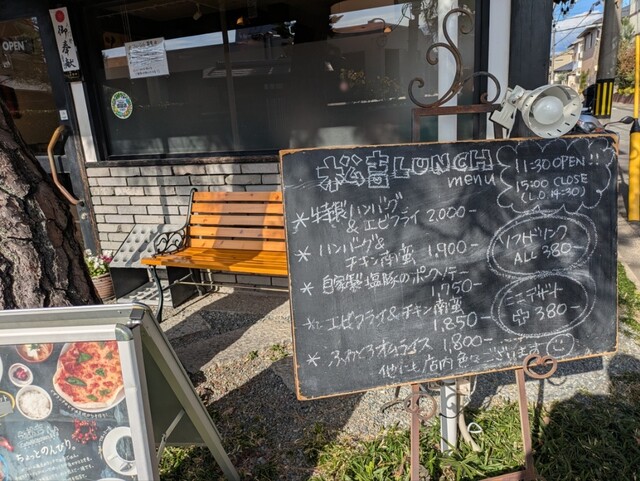 OPEN
御奉献
松喜 LUNCH
menu
11:30 OPEN!!
15:00 CLOSE
(L.O 14:30)
*特製ハンバーグ
&エビフライ 2,000-
*ハンバーグ&
チキン南蛮 1,900-
*自家製塩豚のポークソテー
1,750-
*エビフライ&チキン南蛮
1,850-
*ふわとろオムライス 1,800-
他にも店内色々ございます
ソフトドリンク
ALL 380-
ミニデザート
380-
ちょっとのんびり。